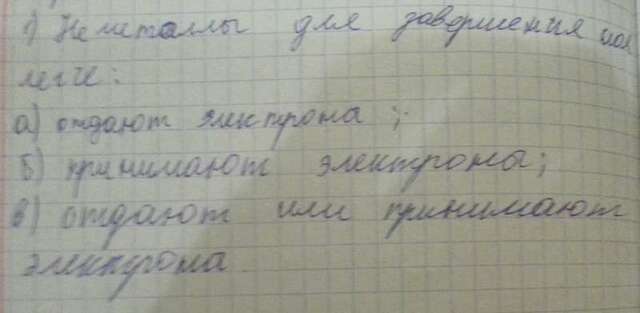 1) Неметаллы для завершения
легче:
а) отдают электрона ;
б) принимают электрона;
в) отдают или принимают
электрона